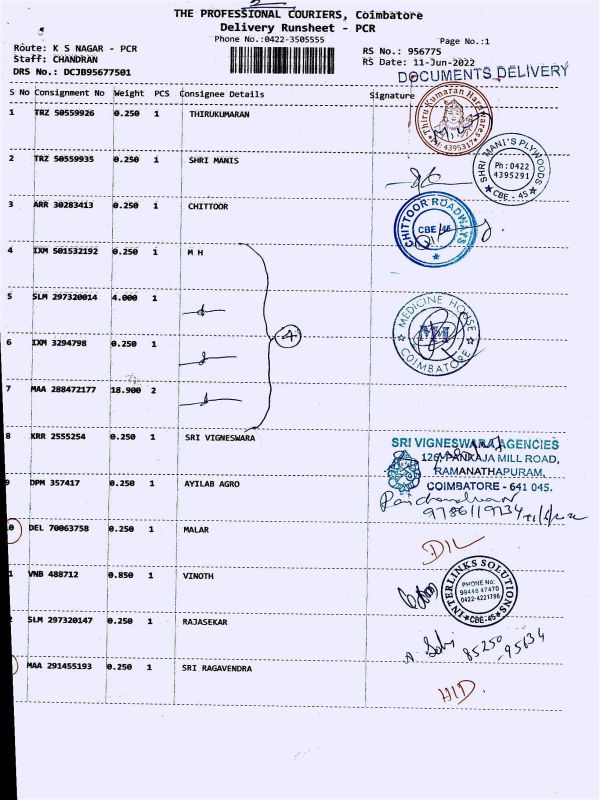 THE PROFESSIONAL COURIERS, Coimbatore
Delivery Runsheet - PCR
Phone No.:0422-3505555
Page No.:1
Route: K S NAGAR - PCR
RS No.: 956775
Staff: CHANDRAN
RS Date: 11-Jun-2022
DRS No.: DCJB95677501
DOCUMENTS DELIVERY
S No Consignment No Weight PCS Consignee Details Signature
1 TRZ 50559926 0.250 1 THIRUKUMARAN
Thiru Kumaran Hardwares
4395317
2 TRZ 50559935 0.250 1 SHRI MANIS
SHRI MANI'S PLYWOODS
Ph : 0422
4395291
CBE - 45
3 ARR 30283413 0.250 1 CHITTOOR
CHITTOOR ROADWAYS
CBE - 45
4 IXM 501532192 0.250 1 M H
5 SLM 297320014 4.000 1
MEDICINE HOUSE
MH
COIMBATORE
4
6 IXM 3294798 0.250 1
7 MAA 288472177 18.900 2
8 KRR 2555254 0.250 1 SRI VIGNESWARA
SRI VIGNESWARA AGENCIES
126, PANKAJA MILL ROAD,
RAMANATHAPURAM,
COIMBATORE - 641 045.
9 DPM 357417 0.250 1 AYILAB AGRO
9786119734
10 DEL 70063758 0.250 1 MALAR
D/L
1 VNB 488712 0.850 1 VINOTH
INTERLINKS SOLUTIONS
PHONE No:
99448 47470
0422-4221796
CBE-45
2 SLM 297320147 0.250 1 RAJASEKAR
85250 95634
MAA 291455193 0.250 1 SRI RAGAVENDRA
H/D.